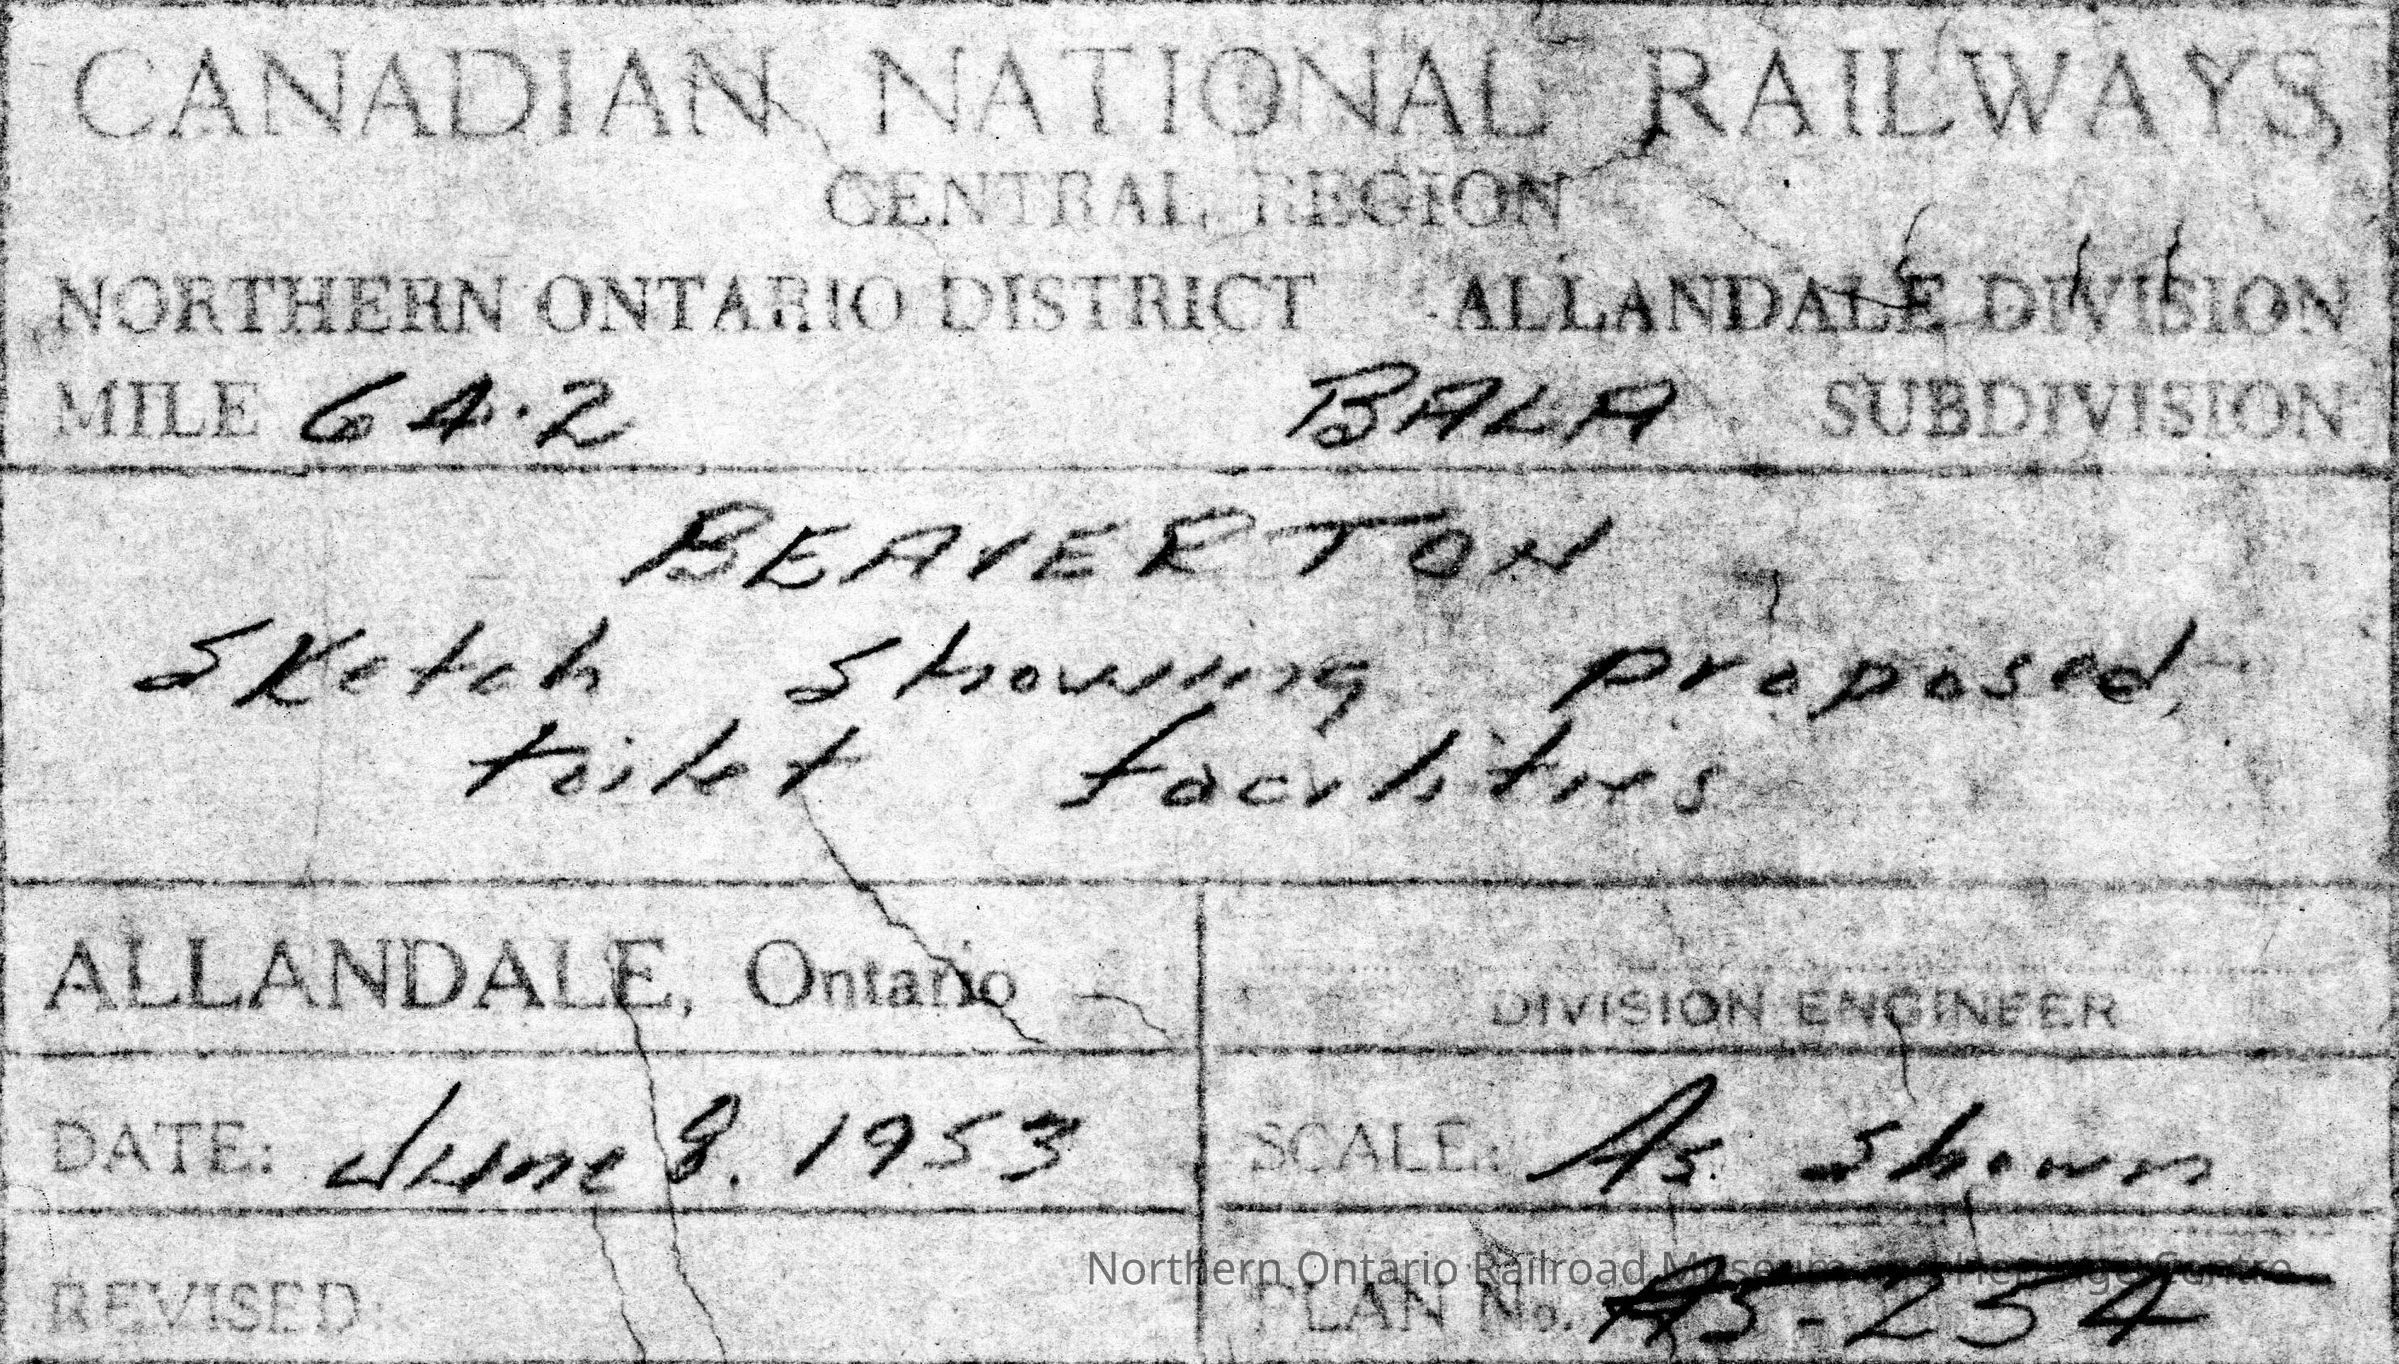 CANADIAN NATIONAL RAILWAYS,
CENTRAL REGION
NORTHERN ONTARIO DISTRICT ALLANDALE DIVISION
MILE 64.2 BALA SUBDIVISION
BEAVERTON
Sketch Showing proposed,
toilet facilities
ALLANDALE, Ontario
DIVISION ENGINEER
DATE: June 8. 1953
SCALE: As Shown
Northern Ontario Railroad Museum and Heritage Centre
REVISED:
PLAN No. A5-254